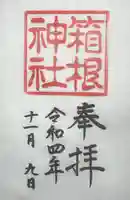 箱根
神社
奉拝
令和四年
十一月 九日